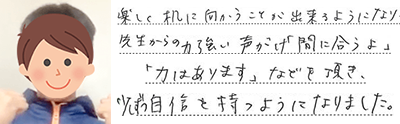 楽しく机に向かうことが出来るようになり
先生からの力強い声がけ「間に合うよ」
「力はあります」などを頂き、
自信を持つようになりました。